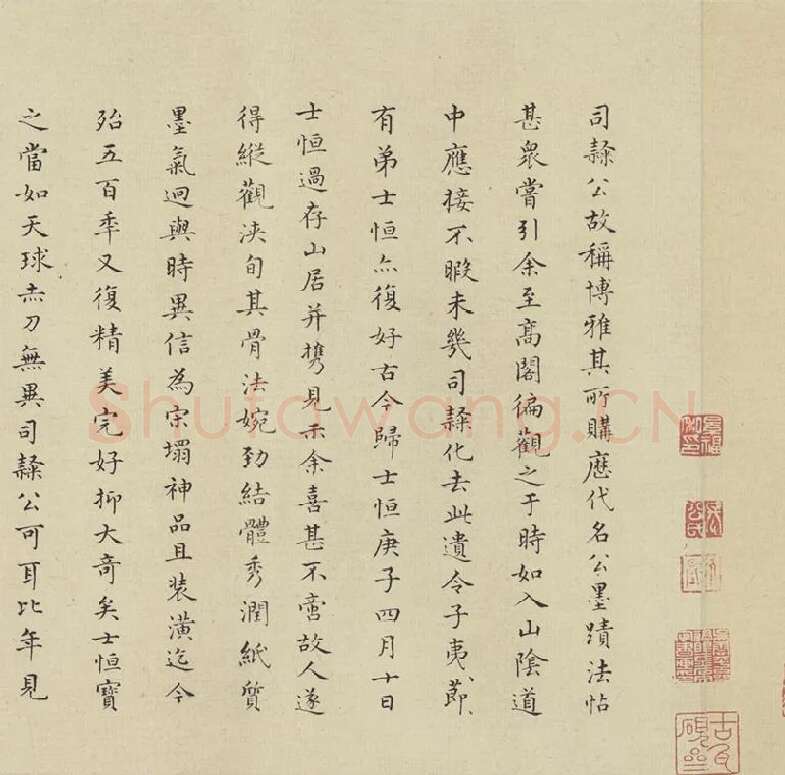 司隸公故稱博雅其所購歷代名公墨蹟法帖
甚衆嘗引余至高閣徧觀之于時如入山陰道
中應接不暇未幾司隸化去此遺令子夷節
有弟士恒亦復好古今歸士恒庚子四月十日
士恒過存山居并携見示余喜甚不啻故人遂
得縱觀浹旬其骨法婉勁結體秀潤紙質
墨氣迥與時異信為宋搨神品且装潢迄今
殆五百年又復精美完好抑大奇矣士恒寶
之當如天球赤刀無異司隸公可耳比年見
Shufawang.CN